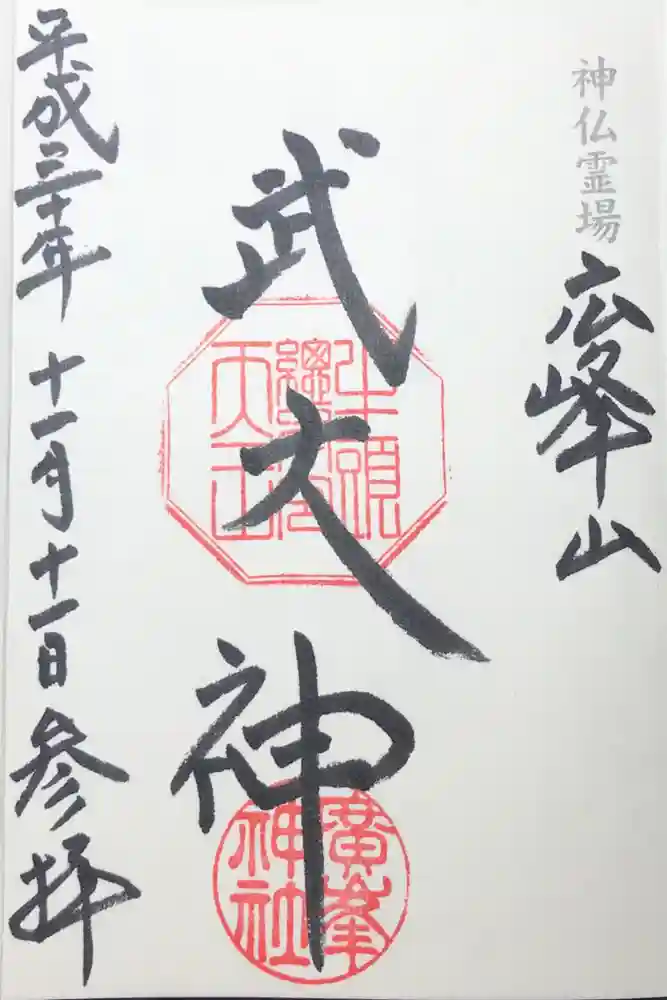 神仏霊場
広峰山
武大神
牛頭
天王
廣峯
神社
平成三十年 十一月十一日 参拝